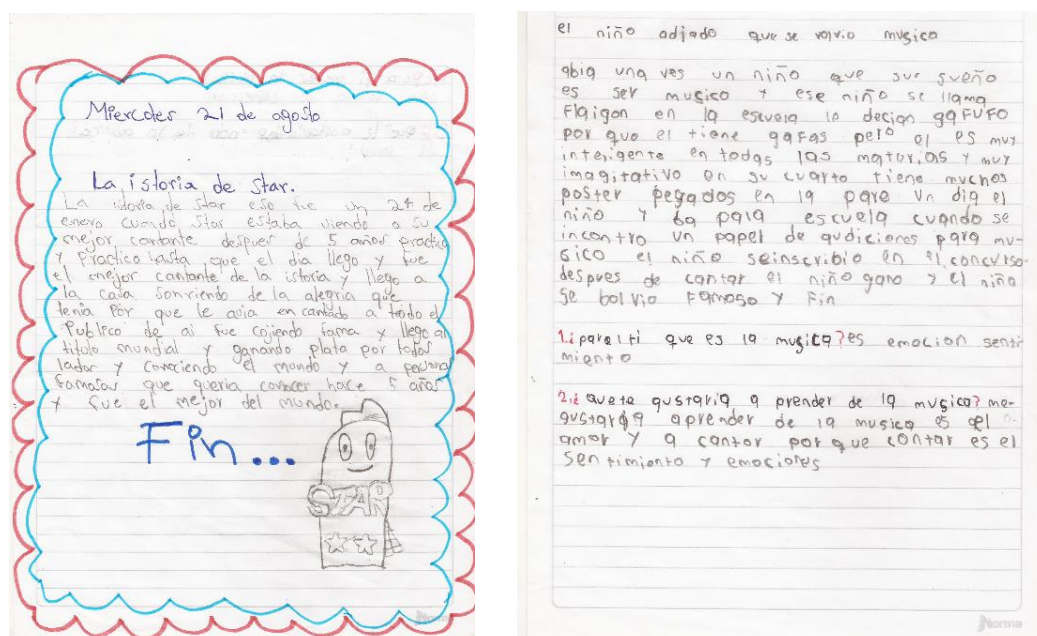 Miercoles 21 de agosto
La istoria de Star.
La istoria de Star eso fue un 24 de
enero cuando Star estaba viendo a su
mejor cantante despues de 5 años practico
y practico hasta que el dia llego y fue
el mejor cantante de la istoria y llego a
la casa sonriendo de la alegria que
tenia por que le avia encantado a todo el
Publico de ai fue cojiendo fama y llego al
titulo mundial y ganando plata por todos
lados y conociendo el mundo y a personas
famosas que queria conocer hace 5 años
y fue el mejor del mundo.
Fin...
STAR
Norma
el niño adjado que se volvio musico
abia una ves un niño que sur sueño
es ser musico y ese niño se llama
Flaigon en la escuela lo decian gaFUFO
por que el tiene gafas pelo el es muy
inteligente en todas las matorias y muy
imagitativo en su cuarto tiene muchos
poster pegados en la pare un dia el
niño y ba para escuela cuando se
incontro un papel de audiciones para mu-
sico el niño seinscribio en el concurso
despues de cantar el niño gano y el niño
se bolvio Famoso y Fin
1.¿para ti que es la musica? es emocion senti
miento
2.¿ que te gustaria a prender de la musica? me-
gustaria aprender de la musica es el
amor y a cantar por que contar es el
sentimiento y emociones
Norma